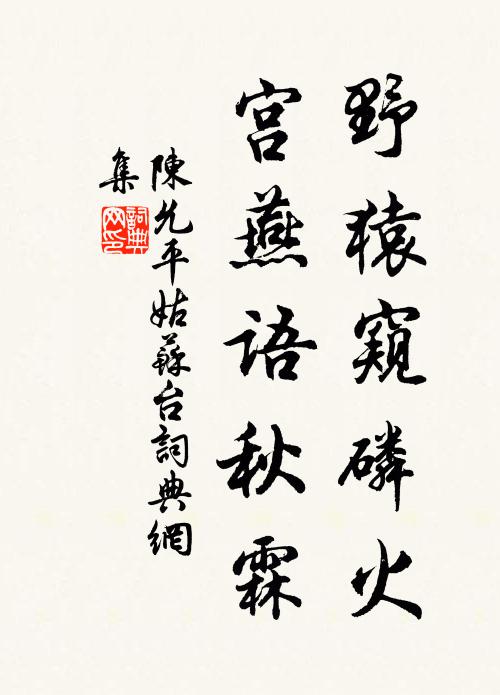 野猿窺磷火
宮燕語秋霖
陳允平姑蘇台詞典網
集
詞典網印